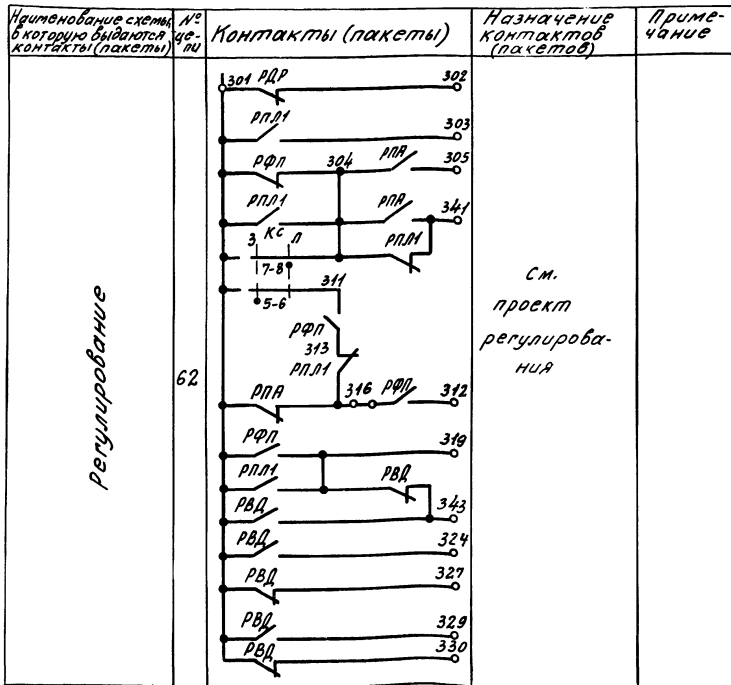 Наименование схемы, в которую выдаются контакты (пакеты)
№ це-пи
Контакты (пакеты)
Назначение контактов (пакетов)
Приме-чание
Регулирование
62
См. проект регулирова-ния
301 РДР 302
РПЛ1 303
РФП 304 РПА 305
РПЛ1 РПА 341
З КС Л РПЛ1
7-8
311
5-6
РФП
313
РПЛ1
РПА 316 РФП 312
РФП 319
РПЛ1 РВД
РВД 343
РВД 324
РВД 327
РВД 329
РВД 330